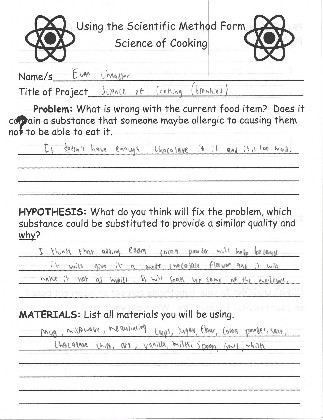 Using the Scientific Method Form
Science of Cooking
Name/s Evan
Title of Project Science of Cooking (brownies)
Problem: What is wrong with the current food item? Does it
contain a substance that someone maybe allergic to causing them
not to be able to eat it.
It doesn't have enough chocolate in it and it's too moist.
HYPOTHESIS: What do you think will fix the problem, which
substance could be substituted to provide a similar quality and
why?
I think that adding cocoa powder will help because
it will give it a chocolate flavor and it will
make it not as moist. It will soak up some of the
MATERIALS: List all materials you will be using.
Mug, microwave, measuring cups, sugar, flour, cocoa powder, salt,
chocolate chips, oil, vanilla, milk, spoon, bowl, whisk